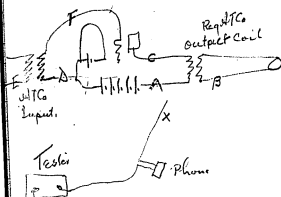 F
Reg ATCo
Output Coil
C
E
D
A
B
ATCo
Input.
X
Tester
Phone